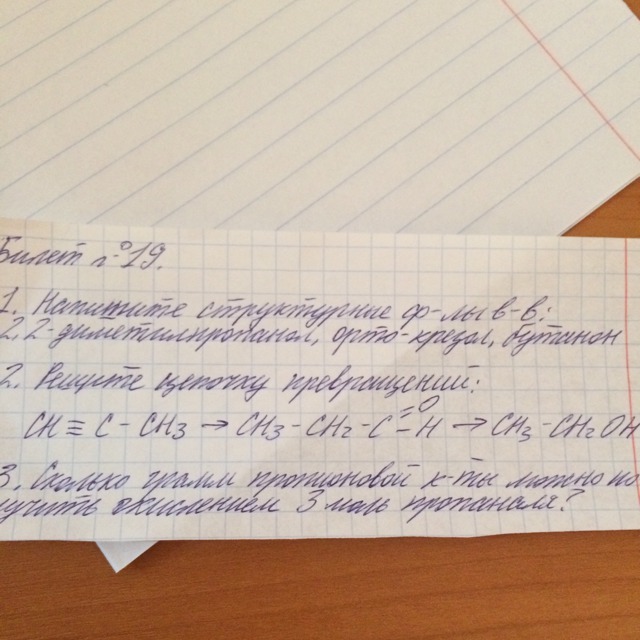 Билет №19.
1. Напишите структурные ф-лы в-в:
2,2-диметилпропанол, орто-крезол, бутанон
2. Решите цепочку превращений:
CH ≡ C - CH₃ → CH₃ - CH₂ - C = O - H → CH₃ - CH₂OH
3. Сколько грамм пропионовой к-ты можно по
лучить окислением 3 моль пропаналя?